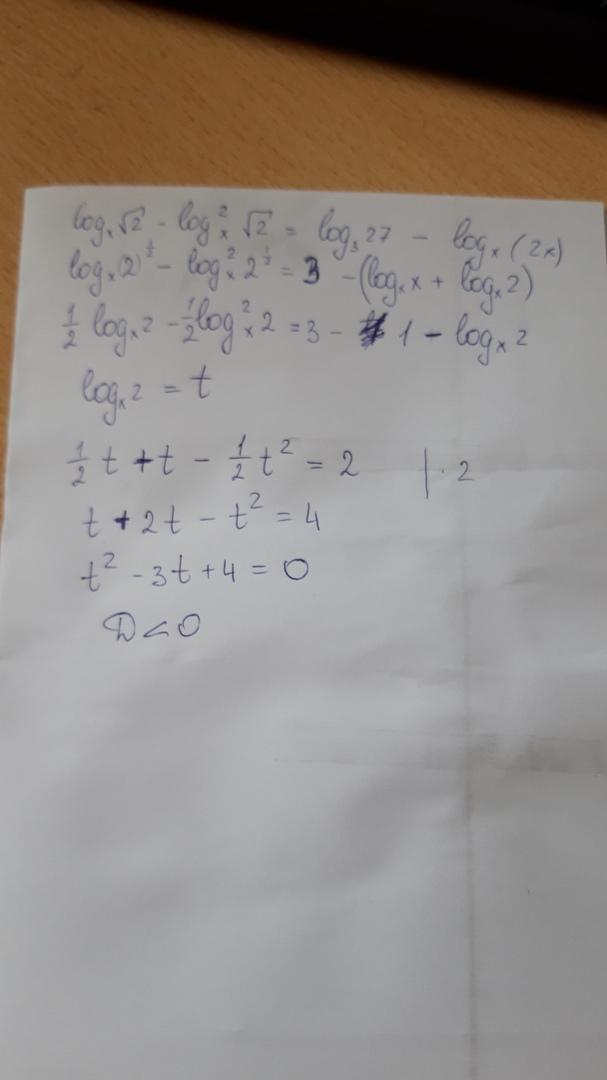 logₓ√2 - logₓ²√2 = log₃27 - logₓ(2x)
logₓ(2)^½ - logₓ² 2^½ = 3 - (logₓx + logₓ2)
½ logₓ2 - ½ logₓ² 2 = 3 - 1 - logₓ2
logₓ2 = t
½ t + t - ½ t² = 2 | · 2
t + 2t - t² = 4
t² - 3t + 4 = 0
D < 0